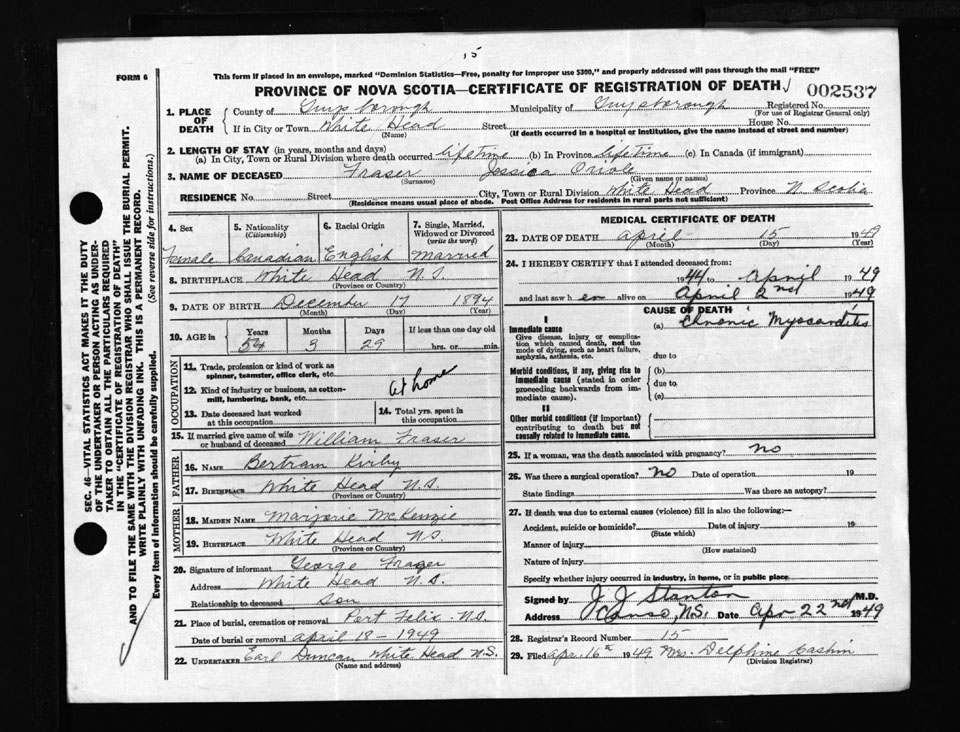 15
FORM 6
This form if placed in an envelope, marked "Dominion Statistics—Free, penalty for improper use $300," and properly addressed will pass through the mail "FREE"
PROVINCE OF NOVA SCOTIA—CERTIFICATE OF REGISTRATION OF DEATH 002537
1. PLACE OF DEATH
County of Guysborough Municipality of Guysborough Registered No.
(For use of Registrar General only)
If in City or Town White Head Street House No.
(Name) (If death occurred in a hospital or institution, give the name instead of street and number)
2. LENGTH OF STAY (in years, months and days)
(a) In City, Town or Rural Division where death occurred lifetime (b) In Province lifetime (c) In Canada (if immigrant)
3. NAME OF DECEASED Fraser Jessica Oriole
(Surname) (Given name or names)
RESIDENCE No. Street City, Town or Rural Division White Head Province N. Scotia
(Residence means usual place of abode. Post Office Address for residents in rural parts not sufficient)
4. Sex
Female
5. Nationality
(Citizenship)
Canadian
6. Racial Origin
English
7. Single, Married, Widowed or Divorced
(write the word)
Married
8. BIRTHPLACE White Head N.S.
(Province or Country)
9. DATE OF BIRTH December 17 1894
(Month) (Day) (Year)
10. AGE in
Years Months Days If less than one day old
54 3 29 hrs. or min.
OCCUPATION
11. Trade, profession or kind of work as spinner, teamster, office clerk, etc.
12. Kind of industry or business, as cotton-mill, lumbering, bank, etc.
at home
13. Date deceased last worked at this occupation
14. Total yrs. spent in this occupation
15. If married give name of wife or husband of deceased William Fraser
FATHER
16. NAME Bertram Kirby
17. BIRTHPLACE White Head N.S.
(Province or Country)
MOTHER
18. MAIDEN NAME Marjorie McKenzie
19. BIRTHPLACE White Head N.S.
(Province or Country)
20. Signature of informant George Fraser
Address White Head N.S.
Relationship to deceased son
21. Place of burial, cremation or removal Port Felix N.S.
Date of burial or removal April 18 - 1949
22. UNDERTAKER Earl Duncan White Head N.S.
(Name and address)
MEDICAL CERTIFICATE OF DEATH
23. DATE OF DEATH April 15 1949
(Month) (Day) (Year)
24. I HEREBY CERTIFY that I attended deceased from:
1944 to April 1949
and last saw her alive on April 2nd 1949
CAUSE OF DEATH
I
Immediate cause
Give disease, injury or complication which caused death, not the mode of dying, such as heart failure, asphyxia, asthenia, etc.
(a) Chronic Myocarditis
due to
Morbid conditions, if any, giving rise to immediate cause (stated in order proceeding backwards from immediate cause)
(b)
due to
(c)
II
Other morbid conditions (if important) contributing to death but not causally related to immediate cause.
25. If a woman, was the death associated with pregnancy? no
26. Was there a surgical operation? no Date of operation 19
State findings Was there an autopsy?
27. If death was due to external causes (violence) fill in also the following:—
Accident, suicide or homicide? Date of injury 19
(State which)
Manner of injury
(How sustained)
Nature of injury
Specify whether injury occurred in industry, in home, or in public place
Signed by J J Stanton M.D.
Address Canso, N.S. Date Apr 22nd 1949
28. Registrar's Record Number 15
29. Filed Apr. 16th 1949 Mrs. Delphine Cashin
(Division Registrar)
SEC. 46—VITAL STATISTICS ACT MAKES IT THE DUTY
OF THE UNDERTAKER OR PERSON ACTING AS UNDER-
TAKER TO OBTAIN ALL THE PARTICULARS REQUIRED
IN THE "CERTIFICATE OF REGISTRATION OF DEATH"
AND TO FILE THE SAME WITH THE DIVISION REGISTRAR WHO SHALL ISSUE THE BURIAL PERMIT.
WRITE PLAINLY WITH UNFADING INK. THIS IS A PERMANENT RECORD.
Every item of information should be carefully supplied. (See reverse side for instructions.)